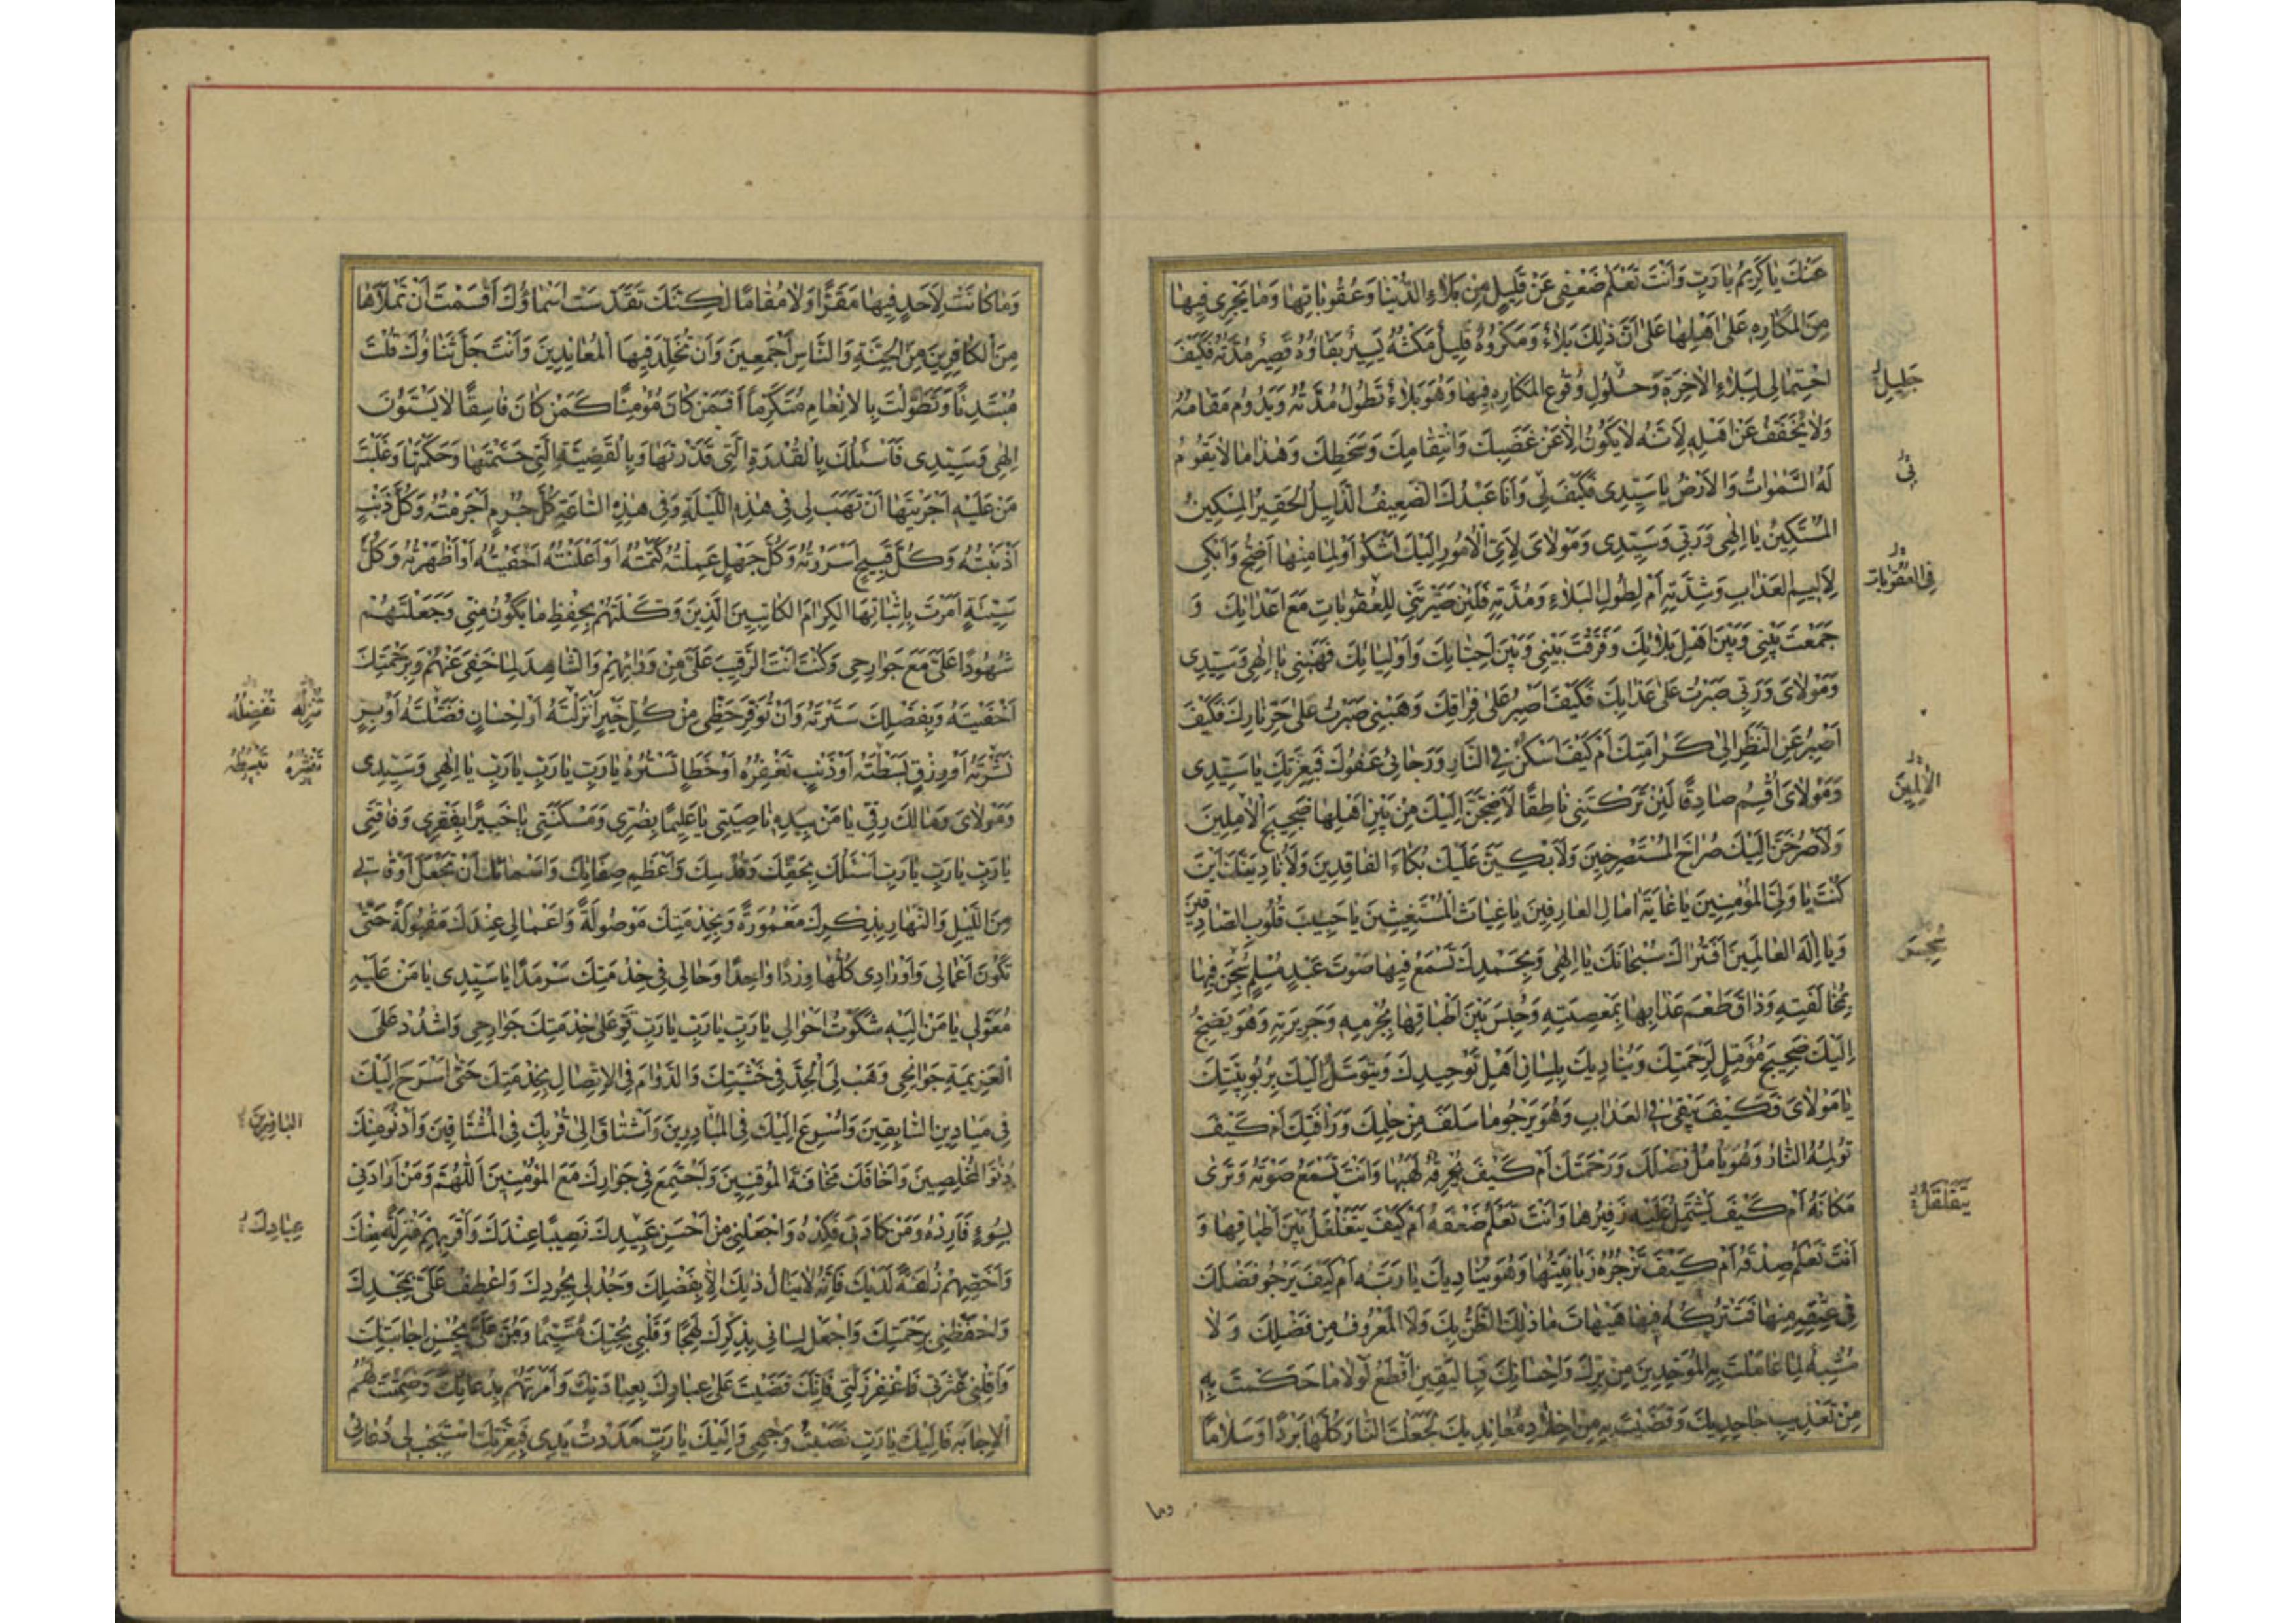 عَنْكَ يَا كَرِيمُ يَا رَبِّ وَأَنْتَ تَعْلَمُ ضَعْفِي عَنْ قَلِيلٍ مِنْ بَلَاءِ الدُّنْيَا وَعُقُوبَاتِهَا وَمَا يَجْرِي فِيهَا
مِنَ الْمَكَارِهِ عَلَى أَهْلِهَا عَلَى أَنَّ ذَلِكَ بَلَاءٌ وَمَكْرُوهٌ قَلِيلٌ مَكْثُهُ يَسِيرٌ بَقَاؤُهُ قَصِيرٌ مُدَّتُهُ فَكَيْفَ
احْتِمَالِي لِبَلَاءِ الْآخِرَةِ وَحُلُولِ وُقُوعِ الْمَكَارِهِ فِيهَا وَهُوَ بَلَاءٌ تَطُولُ مُدَّتُهُ وَيَدُومُ مَقَامُهُ
جَلِيلِ
وَلَا يُخَفَّفُ عَنْ أَهْلِهِ لِأَنَّهُ لَا يَكُونُ إِلَّا عَنْ غَضَبِكَ وَانْتِقَامِكَ وَسَخَطِكَ وَهَذَا مَا لَا يَقُومُ
لَهُ السَّمَوَاتُ وَالْأَرْضُ يَا سَيِّدِي فَكَيْفَ لِي وَأَنَا عَبْدُكَ الضَّعِيفُ الذَّلِيلُ الْحَقِيرُ الْمِسْكِينُ
بِي
الْمُسْتَكِينُ يَا إِلَهِي وَرَبِّي وَسَيِّدِي وَمَوْلَايَ لِأَيِّ الْأُمُورِ إِلَيْكَ أَشْكُو وَلِمَا مِنْهَا أَضِجُّ وَأَبْكِي
لِأَلِيمِ الْعَذَابِ وَشِدَّتِهِ أَمْ لِطُولِ الْبَلَاءِ وَمُدَّتِهِ فَلَئِنْ صَيَّرْتَنِي لِلْعُقُوبَاتِ مَعَ أَعْدَائِكَ وَ
فِي الْعُقُوبَاتِ
جَمَعْتَ بَيْنِي وَبَيْنَ أَهْلِ بَلَائِكَ وَفَرَّقْتَ بَيْنِي وَبَيْنَ أَحِبَّائِكَ وَأَوْلِيَائِكَ فَهَبْنِي يَا إِلَهِي وَسَيِّدِي
وَمَوْلَايَ وَرَبِّي صَبَرْتُ عَلَى عَذَابِكَ فَكَيْفَ أَصْبِرُ عَلَى فِرَاقِكَ وَهَبْنِي صَبَرْتُ عَلَى حَرِّ نَارِكَ فَكَيْفَ
أَصْبِرُ عَنِ النَّظَرِ إِلَى كَرَامَتِكَ أَمْ كَيْفَ أَسْكُنُ فِي النَّارِ وَرَجَائِي عَفْوُكَ فَبِعِزَّتِكَ يَا سَيِّدِي
وَمَوْلَايَ أُقْسِمُ صَادِقًا لَئِنْ تَرَكْتَنِي نَاطِقًا لَأَضِجَّنَّ إِلَيْكَ مِنْ بَيْنِ أَهْلِهَا ضَجِيجَ الْآمِلِينَ
الْآلِمِينَ
وَلَأَصْرُخَنَّ إِلَيْكَ صُرَاخَ الْمُسْتَصْرِخِينَ وَلَأَبْكِيَنَّ عَلَيْكَ بُكَاءَ الْفَاقِدِينَ وَلَأُنَادِيَنَّكَ أَيْنَ
كُنْتَ يَا وَلِيَّ الْمُؤْمِنِينَ يَا غَايَةَ آمَالِ الْعَارِفِينَ يَا غِيَاثَ الْمُسْتَغِيثِينَ يَا حَبِيبَ قُلُوبِ الصَّادِقِينَ
وَيَا إِلَهَ الْعَالَمِينَ أَفَتُرَاكَ سُبْحَانَكَ يَا إِلَهِي وَبِحَمْدِكَ تَسْمَعُ فِيهَا صَوْتَ عَبْدٍ مُسْلِمٍ سُجِنَ فِيهَا
بِمُخَالَفَتِهِ وَذَاقَ طَعْمَ عَذَابِهَا بِمَعْصِيَتِهِ وَحُبِسَ بَيْنَ أَطْبَاقِهَا بِجُرْمِهِ وَجَرِيرَتِهِ وَهُوَ يَضِجُّ
إِلَيْكَ ضَجِيجَ مُؤَمِّلٍ لِرَحْمَتِكَ وَيُنَادِيكَ بِلِسَانِ أَهْلِ تَوْحِيدِكَ وَيَتَوَسَّلُ إِلَيْكَ بِرُبُوبِيَّتِكَ
يَا مَوْلَايَ فَكَيْفَ يَبْقَى فِي الْعَذَابِ وَهُوَ يَرْجُو مَا سَلَفَ مِنْ حِلْمِكَ وَرَأْفَتِكَ أَمْ كَيْفَ
تُؤْلِمُهُ النَّارُ وَهُوَ يَأْمُلُ فَضْلَكَ وَرَحْمَتَكَ أَمْ كَيْفَ يُحْرِقُهُ لَهِيبُهَا وَأَنْتَ تَسْمَعُ صَوْتَهُ وَتَرَى
مَكَانَهُ أَمْ كَيْفَ يَشْتَمِلُ عَلَيْهِ زَفِيرُهَا وَأَنْتَ تَعْلَمُ ضَعْفَهُ أَمْ كَيْفَ يَتَغَلْغَلُ بَيْنَ أَطْبَاقِهَا وَ
يَتَقَلْقَلُ
أَنْتَ تَعْلَمُ صِدْقَهُ أَمْ كَيْفَ تَزْجُرُهُ زَبَانِيَتُهَا وَهُوَ يُنَادِيكَ يَا رَبَّهُ أَمْ كَيْفَ يَرْجُو فَضْلَكَ
فِي عِتْقِهِ مِنْهَا فَتَتْرُكُهُ فِيهَا هَيْهَاتَ مَا ذَلِكَ الظَّنُّ بِكَ وَلَا الْمَعْرُوفُ مِنْ فَضْلِكَ وَلَا
مُشْبِهٌ لِمَا عَامَلْتَ بِهِ الْمُوَحِّدِينَ مِنْ بِرِّكَ وَإِحْسَانِكَ فَبِالْيَقِينِ أَقْطَعُ لَوْلَا مَا حَكَمْتَ بِهِ
مِنْ تَعْذِيبِ جَاحِدِيكَ وَقَضَيْتَ بِهِ مِنْ إِخْلَادِ مُعَانِدِيكَ لَجَعَلْتَ النَّارَ كُلَّهَا بَرْدًا وَسَلَامًا
وما
وَمَا كَانَتْ لِأَحَدٍ فِيهَا مَقَرًّا وَلَا مُقَامًا لَكِنَّكَ تَقَدَّسَتْ أَسْمَاؤُكَ أَقْسَمْتَ أَنْ تَمْلَأَهَا
مِنَ الْكَافِرِينَ مِنَ الْجِنَّةِ وَالنَّاسِ أَجْمَعِينَ وَأَنْ تُخَلِّدَ فِيهَا الْمُعَانِدِينَ وَأَنْتَ جَلَّ ثَنَاؤُكَ قُلْتَ
مُبْتَدِئًا وَتَطَوَّلْتَ بِالْإِنْعَامِ مُتَكَرِّمًا أَفَمَنْ كَانَ مُؤْمِنًا كَمَنْ كَانَ فَاسِقًا لَا يَسْتَوُونَ
إِلَهِي وَسَيِّدِي فَأَسْئَلُكَ بِالْقُدْرَةِ الَّتِي قَدَّرْتَهَا وَبِالْقَضِيَّةِ الَّتِي حَتَمْتَهَا وَحَكَمْتَهَا وَغَلَبْتَ
مَنْ عَلَيْهِ أَجْرَيْتَهَا أَنْ تَهَبَ لِي فِي هَذِهِ اللَّيْلَةِ وَفِي هَذِهِ السَّاعَةِ كُلَّ جُرْمٍ أَجْرَمْتُهُ وَكُلَّ ذَنْبٍ
أَذْنَبْتُهُ وَكُلَّ قَبِيحٍ أَسْرَرْتُهُ وَكُلَّ جَهْلٍ عَمِلْتُهُ كَتَمْتُهُ أَوْ أَعْلَنْتُهُ أَخْفَيْتُهُ أَوْ أَظْهَرْتُهُ وَكُلَّ
سَيِّئَةٍ أَمَرْتَ بِإِثْبَاتِهَا الْكِرَامَ الْكَاتِبِينَ الَّذِينَ وَكَّلْتَهُمْ بِحِفْظِ مَا يَكُونُ مِنِّي وَجَعَلْتَهُمْ
شُهُودًا عَلَيَّ مَعَ جَوَارِحِي وَكُنْتَ أَنْتَ الرَّقِيبَ عَلَيَّ مِنْ وَرَائِهِمْ وَالشَّاهِدَ لِمَا خَفِيَ عَنْهُمْ وَبِرَحْمَتِكَ
أَخْفَيْتَهُ وَبِفَضْلِكَ سَتَرْتَهُ وَأَنْ تُوَفِّرَ حَظِّي مِنْ كُلِّ خَيْرٍ أَنْزَلْتَهُ أَوْ إِحْسَانٍ فَضَّلْتَهُ أَوْ بِرٍّ
تُنْزِلُهُ تُفْضِلُهُ
نَشَرْتَهُ أَوْ رِزْقٍ بَسَطْتَهُ أَوْ ذَنْبٍ تَغْفِرُهُ أَوْ خَطَإٍ تَسْتُرُهُ يَا رَبِّ يَا رَبِّ يَا رَبِّ يَا إِلَهِي وَسَيِّدِي
تَنْشُرُهُ تَبْسُطُهُ
وَمَوْلَايَ وَمَالِكَ رِقِّي يَا مَنْ بِيَدِهِ نَاصِيَتِي يَا عَلِيمًا بِضُرِّي وَمَسْكَنَتِي يَا خَبِيرًا بِفَقْرِي وَفَاقَتِي
يَا رَبِّ يَا رَبِّ يَا رَبِّ أَسْئَلُكَ بِحَقِّكَ وَقُدْسِكَ وَأَعْظَمِ صِفَاتِكَ وَأَسْمَائِكَ أَنْ تَجْعَلَ أَوْقَاتِي
مِنَ اللَّيْلِ وَالنَّهَارِ بِذِكْرِكَ مَعْمُورَةً وَبِخِدْمَتِكَ مَوْصُولَةً وَأَعْمَالِي عِنْدَكَ مَقْبُولَةً حَتَّى
تَكُونَ أَعْمَالِي وَأَوْرَادِي كُلُّهَا وِرْدًا وَاحِدًا وَحَالِي فِي خِدْمَتِكَ سَرْمَدًا يَا سَيِّدِي يَا مَنْ عَلَيْهِ
مُعَوَّلِي يَا مَنْ إِلَيْهِ شَكَوْتُ أَحْوَالِي يَا رَبِّ يَا رَبِّ يَا رَبِّ قَوِّ عَلَى خِدْمَتِكَ جَوَارِحِي وَاشْدُدْ عَلَى
الْعَزِيمَةِ جَوَانِحِي وَهَبْ لِيَ الْجِدَّ فِي خَشْيَتِكَ وَالدَّوَامَ فِي الْإِتِّصَالِ بِخِدْمَتِكَ حَتَّى أَسْرَحَ إِلَيْكَ
فِي مَيَادِينِ السَّابِقِينَ وَأُسْرِعَ إِلَيْكَ فِي الْمُبَادِرِينَ وَأَشْتَاقَ إِلَى قُرْبِكَ فِي الْمُشْتَاقِينَ وَأَدْنُوَ مِنْكَ
دُنُوَّ الْمُخْلِصِينَ وَأَخَافَكَ مَخَافَةَ الْمُوقِنِينَ وَأَجْتَمِعَ فِي جِوَارِكَ مَعَ الْمُؤْمِنِينَ اللَّهُمَّ وَمَنْ أَرَادَنِي
بِسُوءٍ فَأَرِدْهُ وَمَنْ كَادَنِي فَكِدْهُ وَاجْعَلْنِي مِنْ أَحْسَنِ عَبِيدِكَ نَصِيبًا عِنْدَكَ وَأَقْرَبِهِمْ مَنْزِلَةً مِنْكَ
عِبَادِكَ
وَأَخَصِّهِمْ زُلْفَةً لَدَيْكَ فَإِنَّهُ لَا يُنَالُ ذَلِكَ إِلَّا بِفَضْلِكَ وَجُدْ لِي بِجُودِكَ وَاعْطِفْ عَلَيَّ بِمَجْدِكَ
وَاحْفَظْنِي بِرَحْمَتِكَ وَاجْعَلْ لِسَانِي بِذِكْرِكَ لَهِجًا وَقَلْبِي بِحُبِّكَ مُتَيَّمًا وَمُنَّ عَلَيَّ بِحُسْنِ إِجَابَتِكَ
وَأَقِلْنِي عَثْرَتِي فَاغْفِرْ زَلَّتِي فَإِنَّكَ قَضَيْتَ عَلَى عِبَادِكَ بِعِبَادَتِكَ وَأَمَرْتَهُمْ بِدُعَائِكَ وَضَمِنْتَ لَهُمُ
الْإِجَابَةَ فَإِلَيْكَ يَا رَبِّ نَصَبْتُ وَجْهِي وَإِلَيْكَ يَا رَبِّ مَدَدْتُ يَدِي فَبِعِزَّتِكَ اسْتَجِبْ لِي دُعَائِي